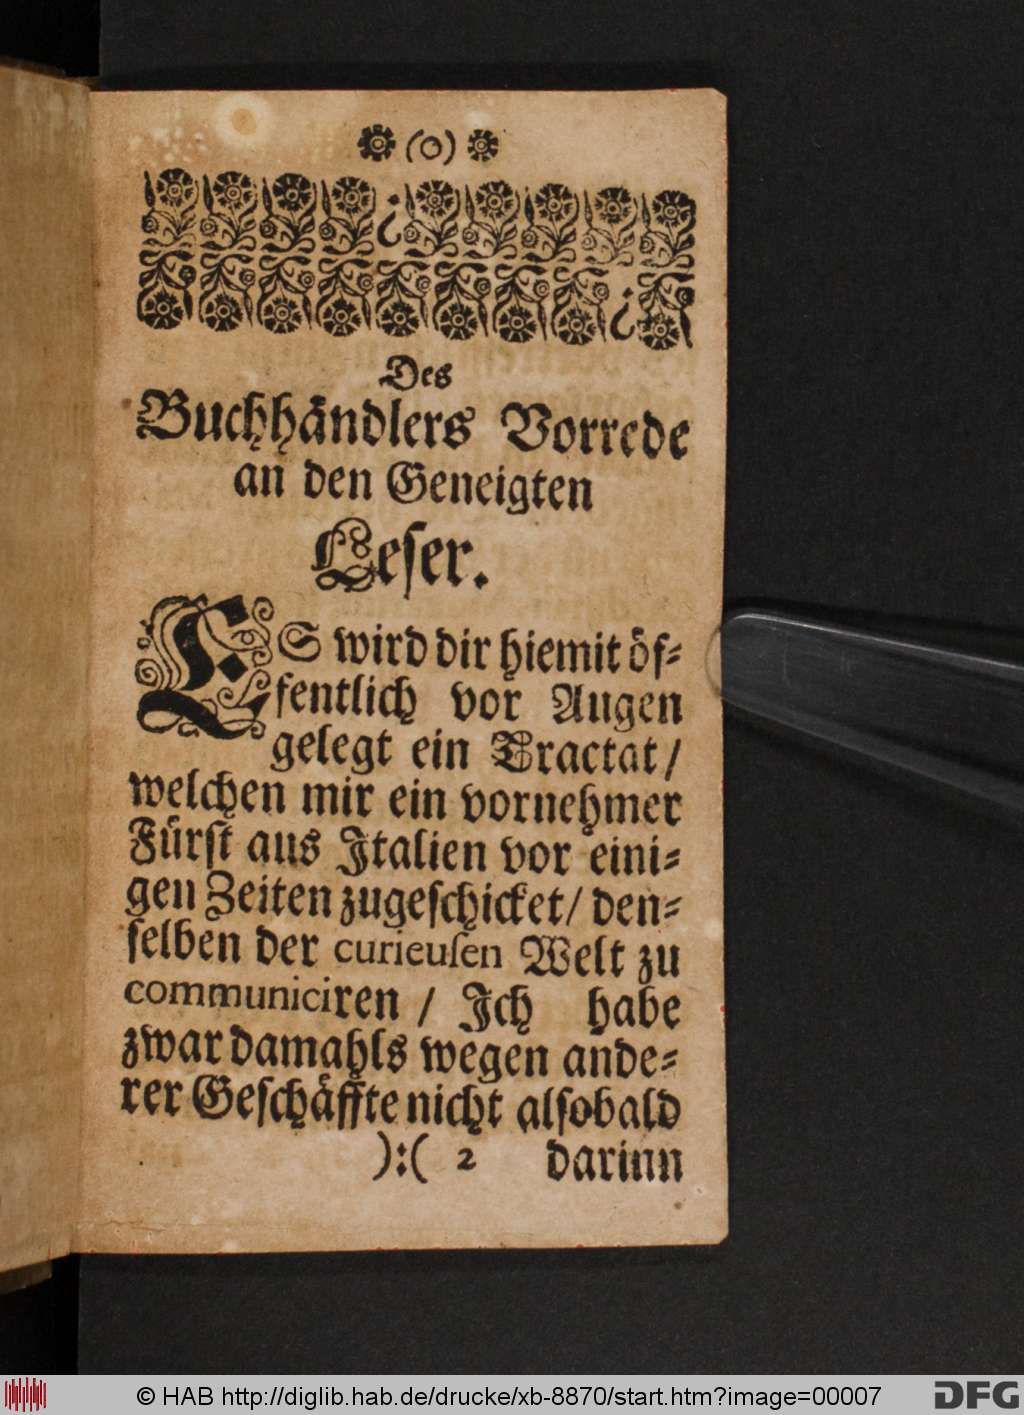 (o)
Des
Buchhändlers Vorrede
an den Geneigten
Leser.
ES wird dir hiemit öf⸗
fentlich vor Augen
gelegt ein Tractat/
welchen mir ein vornehmer
Fürst aus Italien vor eini⸗
gen Zeiten zugeschicket/ den⸗
selben der curieusen Welt zu
communiciren / Ich habe
zwar damahls wegen ande⸗
rer Geschäffte nicht alsobald
):( 2 darinn
© HAB http://diglib.hab.de/drucke/xb-8870/start.htm?image=00007
DFG